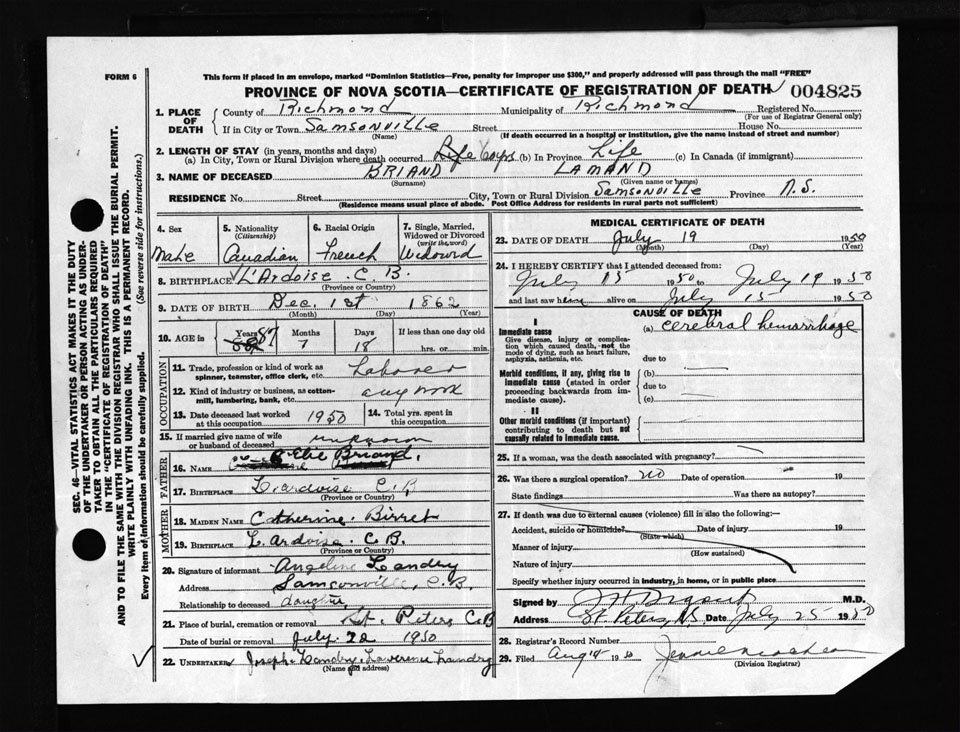 FORM 6
This form if placed in an envelope, marked "Dominion Statistics—Free, penalty for improper use $300," and properly addressed will pass through the mail "FREE"
PROVINCE OF NOVA SCOTIA—CERTIFICATE OF REGISTRATION OF DEATH 004825
1. PLACE OF DEATH
County of Richmond Municipality of Richmond Registered No.
(For use of Registrar General only)
If in City or Town Samsonville Street House No.
(Name) (If death occurred in a hospital or institution, give the name instead of street and number)
2. LENGTH OF STAY (in years, months and days)
(a) In City, Town or Rural Division where death occurred Life (b) In Province Life (c) In Canada (if immigrant)
3. NAME OF DECEASED BRIAND LAMAND
(Surname) (Given name or names)
RESIDENCE No. Street City, Town or Rural Division Samsonville Province N.S.
(Residence means usual place of abode. Post Office Address for residents in rural parts not sufficient)
SEC. 46—VITAL STATISTICS ACT MAKES IT THE DUTY
OF THE UNDERTAKER OR PERSON ACTING AS UNDER-
TAKER TO OBTAIN ALL THE PARTICULARS REQUIRED
IN THE "CERTIFICATE OF REGISTRATION OF DEATH"
AND TO FILE THE SAME WITH THE DIVISION REGISTRAR WHO SHALL ISSUE THE BURIAL PERMIT.
WRITE PLAINLY WITH UNFADING INK. THIS IS A PERMANENT RECORD.
Every item of information should be carefully supplied. (See reverse side for instructions.)
4. Sex Male
5. Nationality (Citizenship) Canadian
6. Racial Origin French
7. Single, Married, Widowed or Divorced (write the word) Widowed
8. BIRTHPLACE L'Ardoise C. B.
(Province or Country)
9. DATE OF BIRTH Dec. 1st 1862
(Month) (Day) (Year)
10. AGE in Years 87 Months 7 Days 18 If less than one day old hrs. or min.
OCCUPATION
11. Trade, profession or kind of work as spinner, teamster, office clerk, etc. Laborer
12. Kind of industry or business, as cotton-mill, lumbering, bank, etc. any work
13. Date deceased last worked at this occupation 1950
14. Total yrs. spent in this occupation
15. If married give name of wife or husband of deceased unknown
FATHER
16. NAME Elie Briand.
17. BIRTHPLACE L'ardoise C.B
(Province or Country)
MOTHER
18. MAIDEN NAME Catherine Birret
19. BIRTHPLACE L'ardoise C.B.
(Province or Country)
20. Signature of informant Angeline Landry
Address Samsonville, C.B.
Relationship to deceased daughter
21. Place of burial, cremation or removal St. Peters C.B
Date of burial or removal July. 22 1950
22. UNDERTAKER Joseph Landry Lawrence Landry
(Name and address)
MEDICAL CERTIFICATE OF DEATH
23. DATE OF DEATH July 19 1950
(Month) (Day) (Year)
24. I HEREBY CERTIFY that I attended deceased from:
July 15 1950 to July 19 1950
and last saw him alive on July 15 1950
CAUSE OF DEATH
I
Immediate cause (a) cerebral hemorrhage
Give disease, injury or complication which caused death, not the mode of dying, such as heart failure, asphyxia, asthenia, etc. due to
Morbid conditions, if any, giving rise to immediate cause (stated in order proceeding backwards from immediate cause). (b)
due to
(c)
II
Other morbid conditions (if important) contributing to death but not causally related to immediate cause.
25. If a woman, was the death associated with pregnancy?
26. Was there a surgical operation? no Date of operation 19
State findings Was there an autopsy?
27. If death was due to external causes (violence) fill in also the following:—
Accident, suicide or homicide? Date of injury 19
(State which)
Manner of injury
(How sustained)
Nature of injury
Specify whether injury occurred in industry, in home, or in public place
Signed by M.D.
Address St. Peters, N.S. Date July 25 1950
28. Registrar's Record Number
29. Filed Aug 14 1950
(Division Registrar)